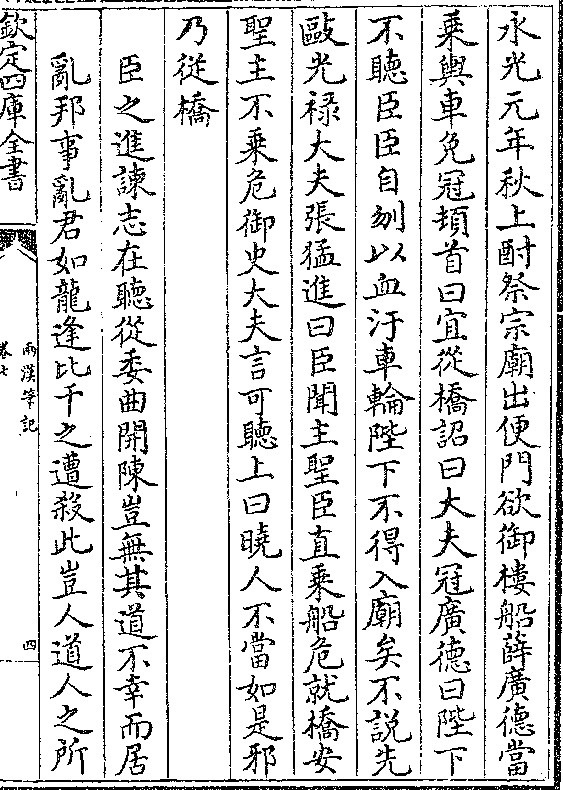 永光元年秋上酎祭宗廟出便門欲御樓船薛廣德當
乘輿車免冠頓首曰宜從橋詔曰大夫冠廣德曰陛下
不聽臣臣自刎以血汙車輪陛下不得入廟矣不說先
敺光禄大夫張猛進曰臣聞主聖臣直乘船危就橋安
聖主不乘危御史大夫言可聽上曰曉人不當如是邪
乃從橋
臣之進諫志在聽從委曲開陳豈無其道不幸而居
亂邦事亂君如龍逢比干之遭殺此豈人道人之所
欽定四庫全書
兩漢筆記
卷七
四